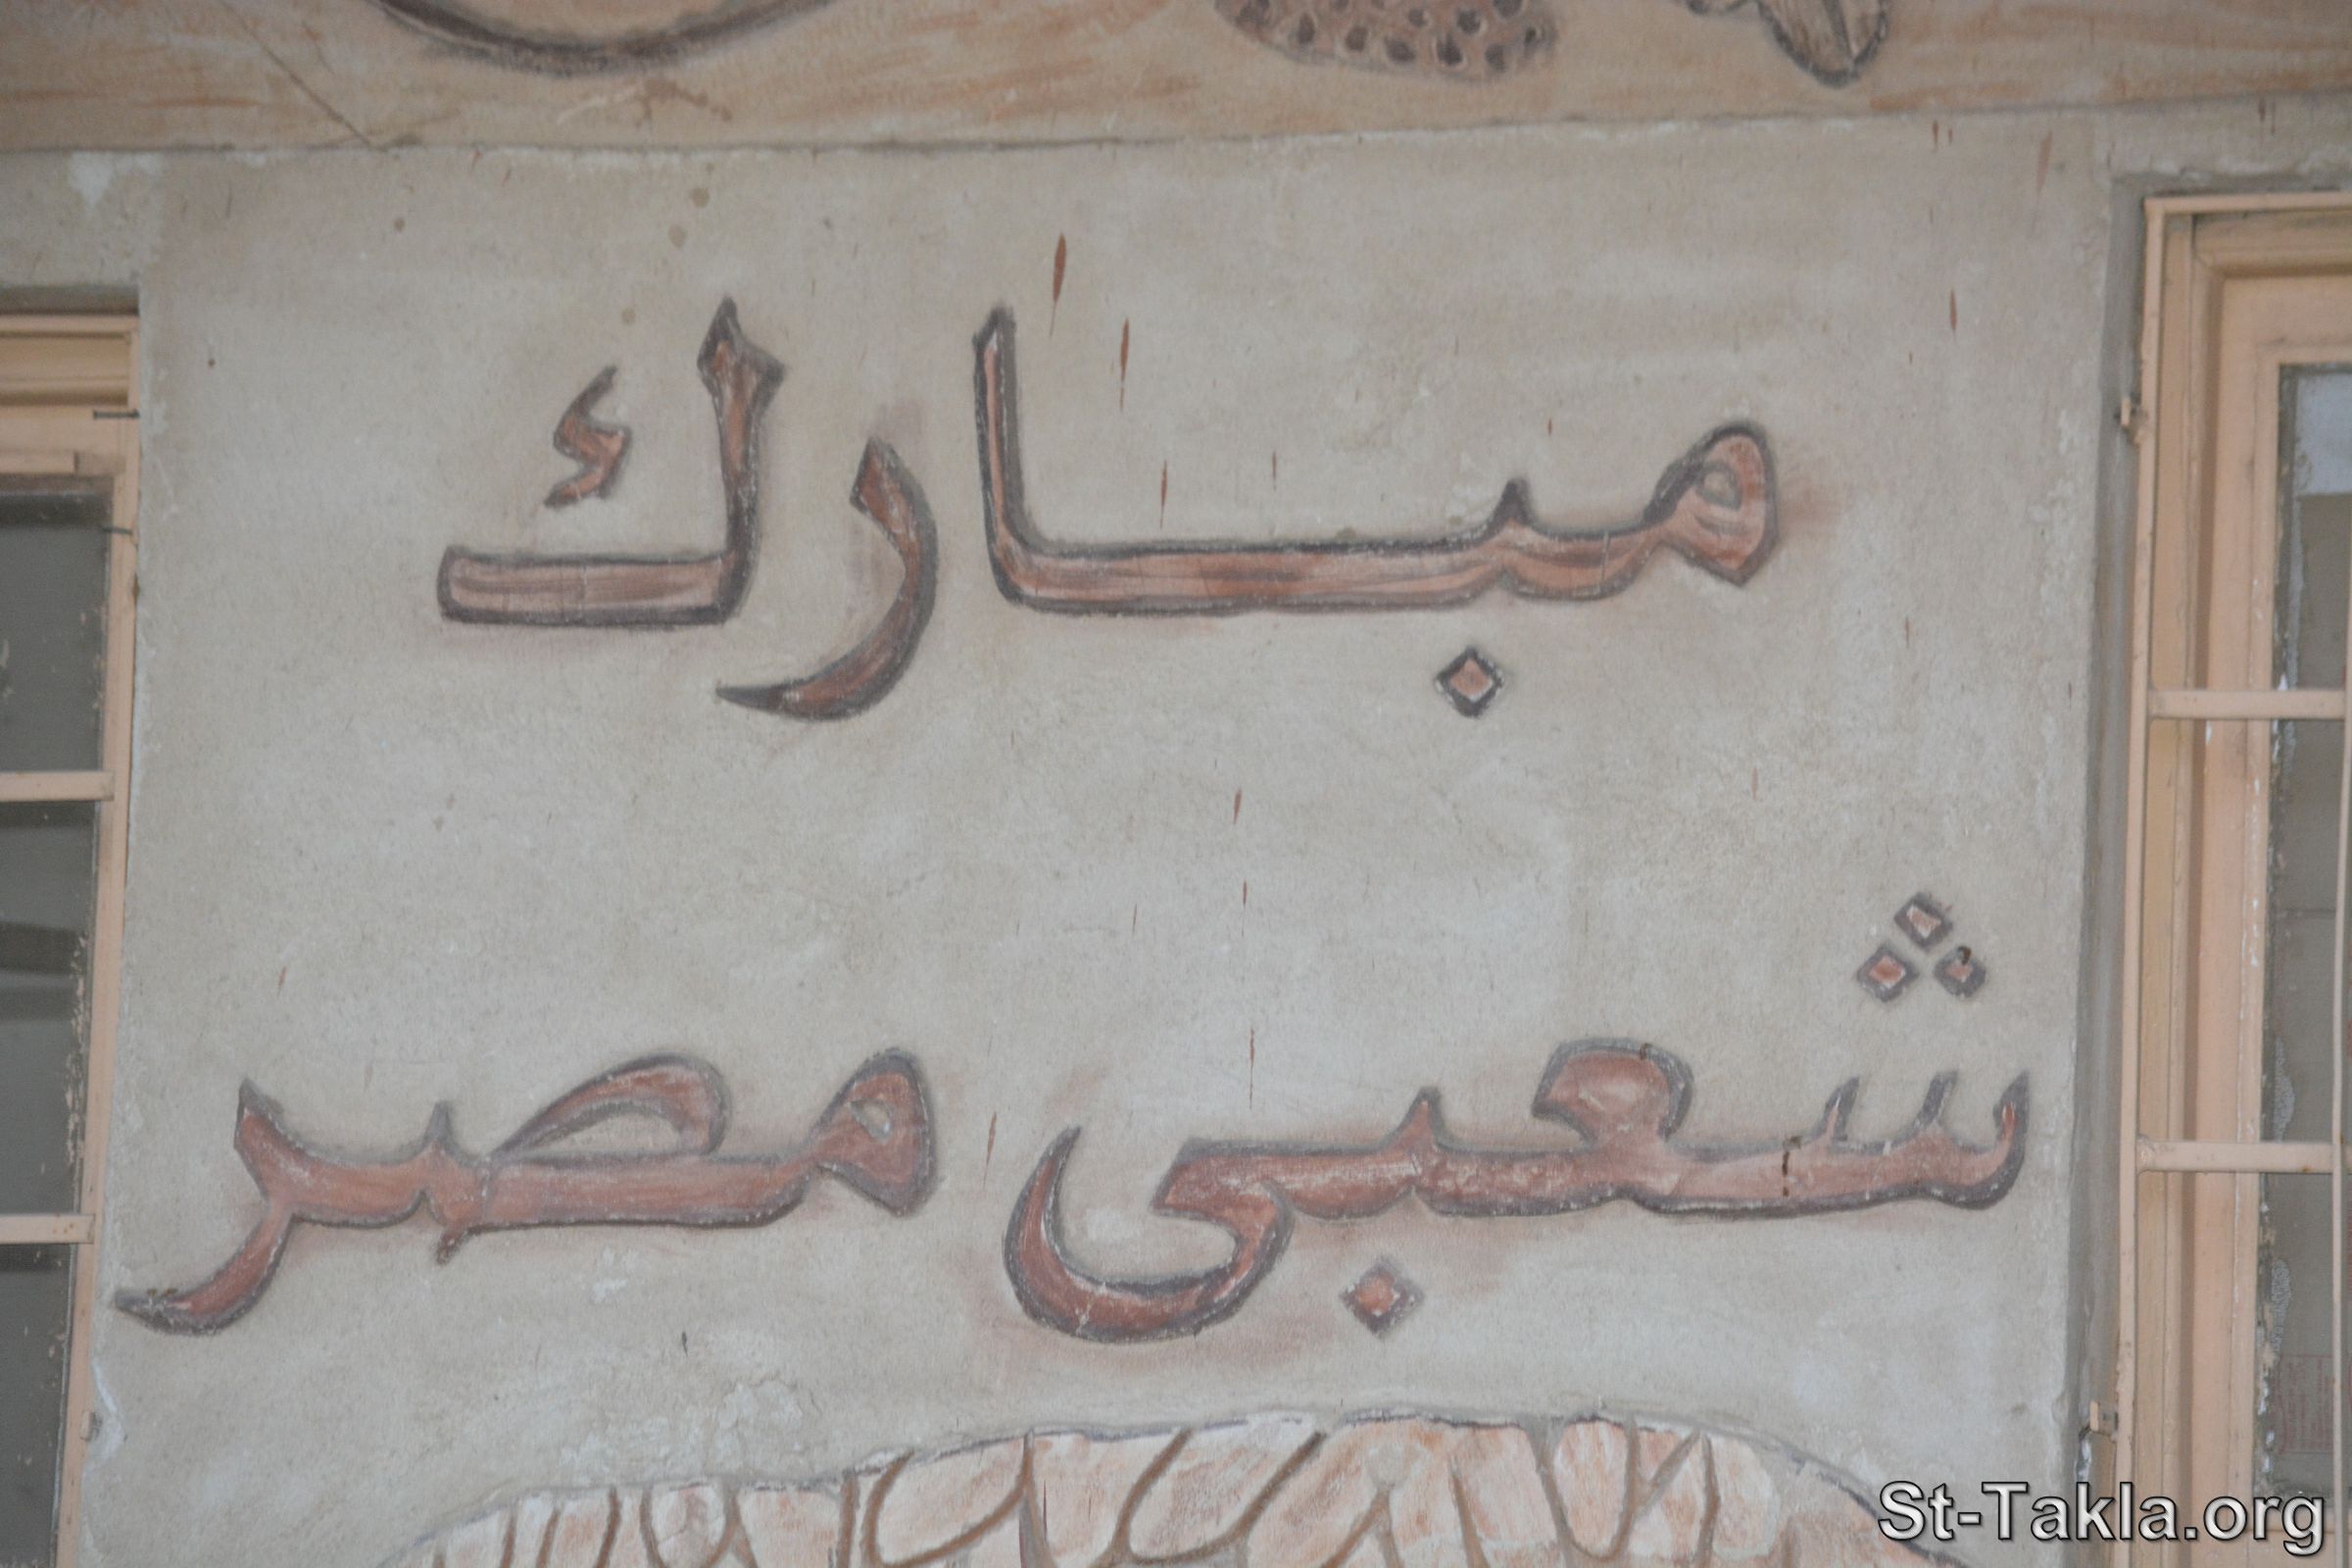 مبارك
شعبى مصر
St-Takla.org